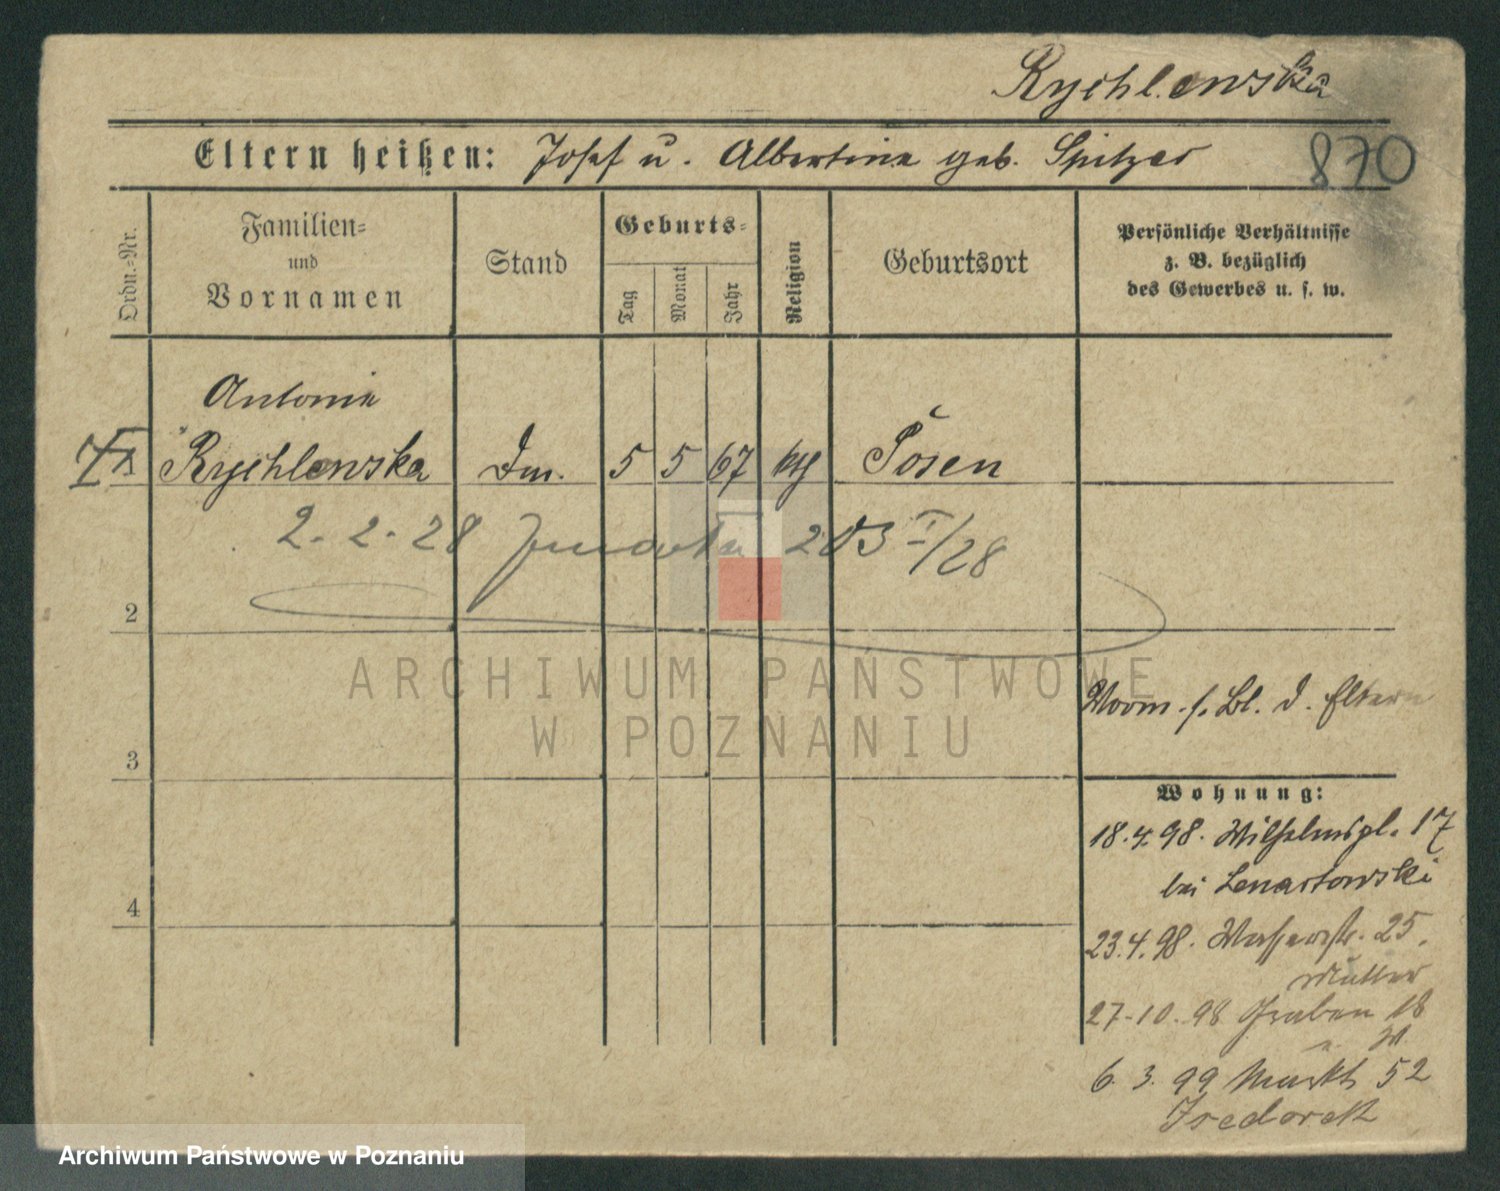 Rychlewska
Eltern heißen: Josef u. Albertine geb. Spitzer
870
Ordn.-Nr.
Familien- und Vornamen
Stand
Geburts-
Tag
Monat
Jahr
Religion
Geburtsort
Persönliche Verhältnisse
z. B. bezüglich
des Gewerbes u. s. w.
Antonie
Rychlewska Dm. 5 5 67 kth Posen
2.2.28 203 I/28
2
Vorm. s. Bl. d. Eltern
3
Wohnung:
18.4.98. Wilhelmspl. 17
bei Lenartowski
4
23.4.98. Wasserstr. 25.
Mutter
27.10.98 Graben 18
6.3.99 Markt 52
ARCHIWUM PAŃSTWOWE
W POZNANIU
Archiwum Państwowe w Poznaniu